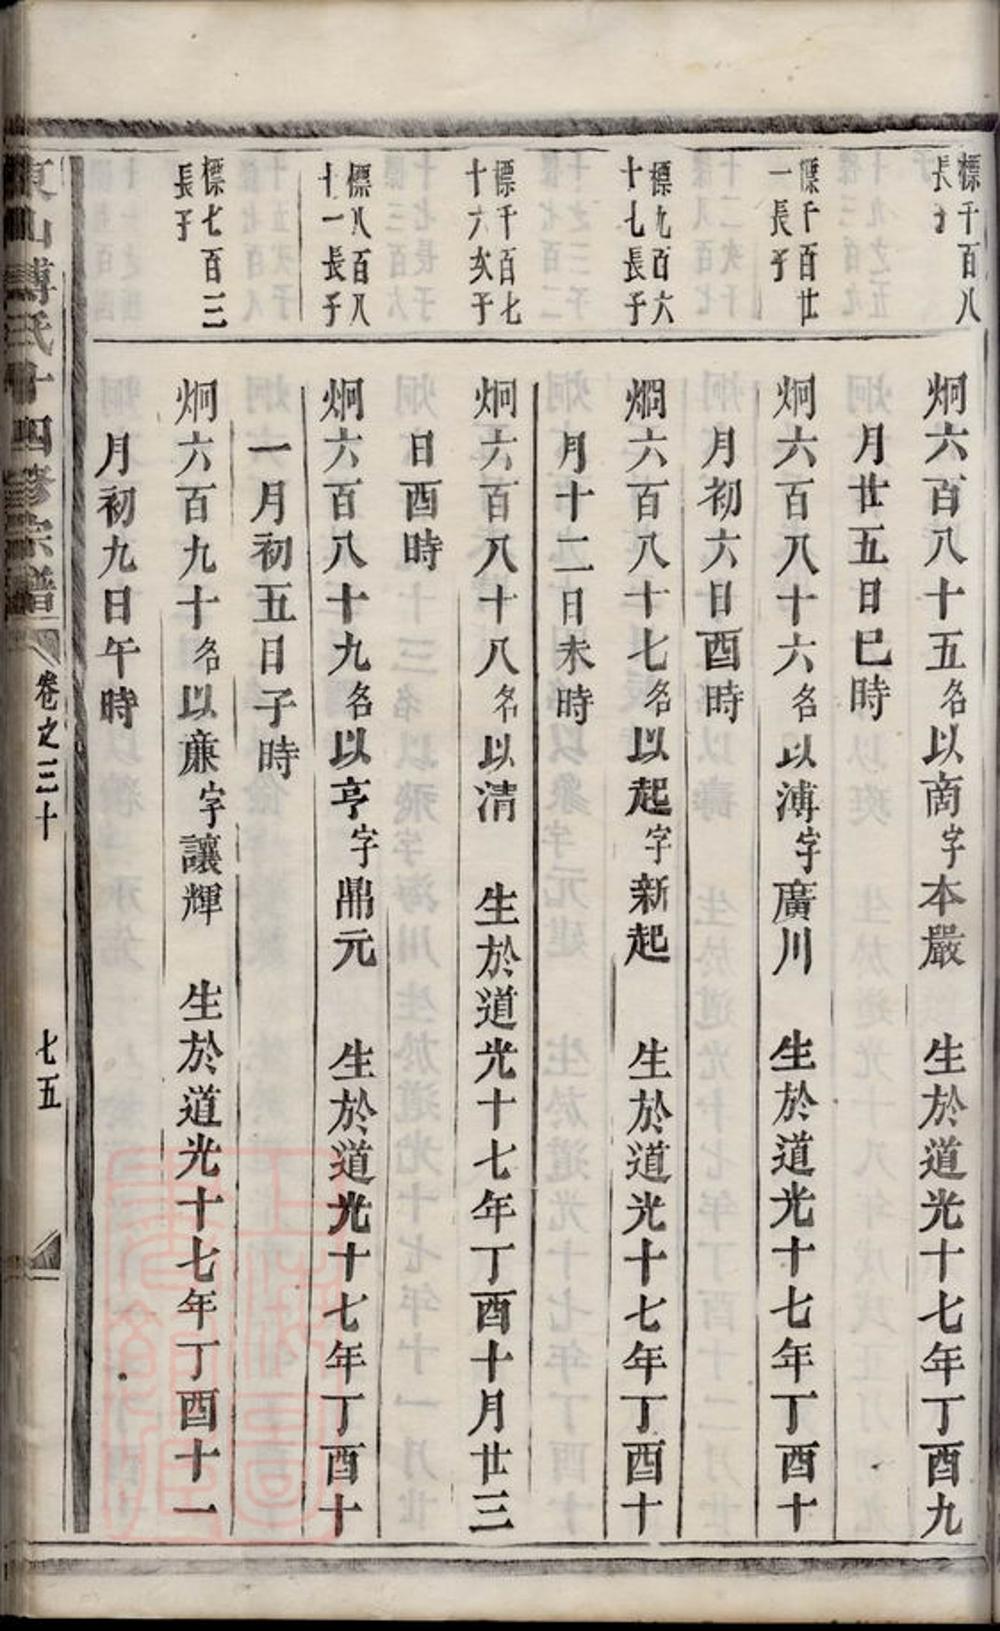 標千百八
長子
炯六百八十五名以商字本嚴 生於道光十七年丁酉九
月廿五日巳時
標千百廿
一長子
炯六百八十六名以溥字廣川 生於道光十七年丁酉十
月初六日酉時
標九百六
十七長子
炯六百八十七名以起字新起 生於道光十七年丁酉十
月十二日未時
標千百七
十六次子
炯六百八十八名以清 生於道光十七年丁酉十月廿三
日酉時
標八百八
十一長子
炯六百八十九名以亨字鼎元 生於道光十七年丁酉十
一月初五日子時
標七百三
長子
炯六百九十名以亷字讓輝 生於道光十七年丁酉十一
月初九日午時
東山傅氏十四修宗譜 卷之三十 七五